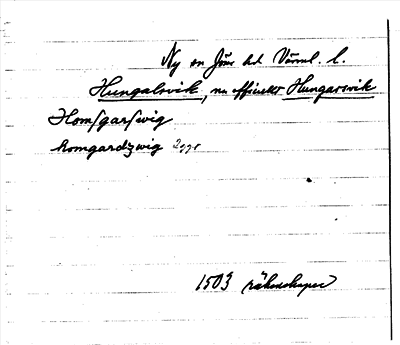 Ny sn Jöns hd Värml. l.
Hungalsvik, nu officiellt Hungarsvik
Homsgarswig
homgardzwig 2 ggr
1503 räkenskaper